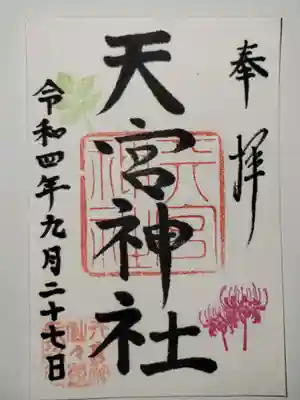 奉拝
天宮神社
令和四年九月二十七日